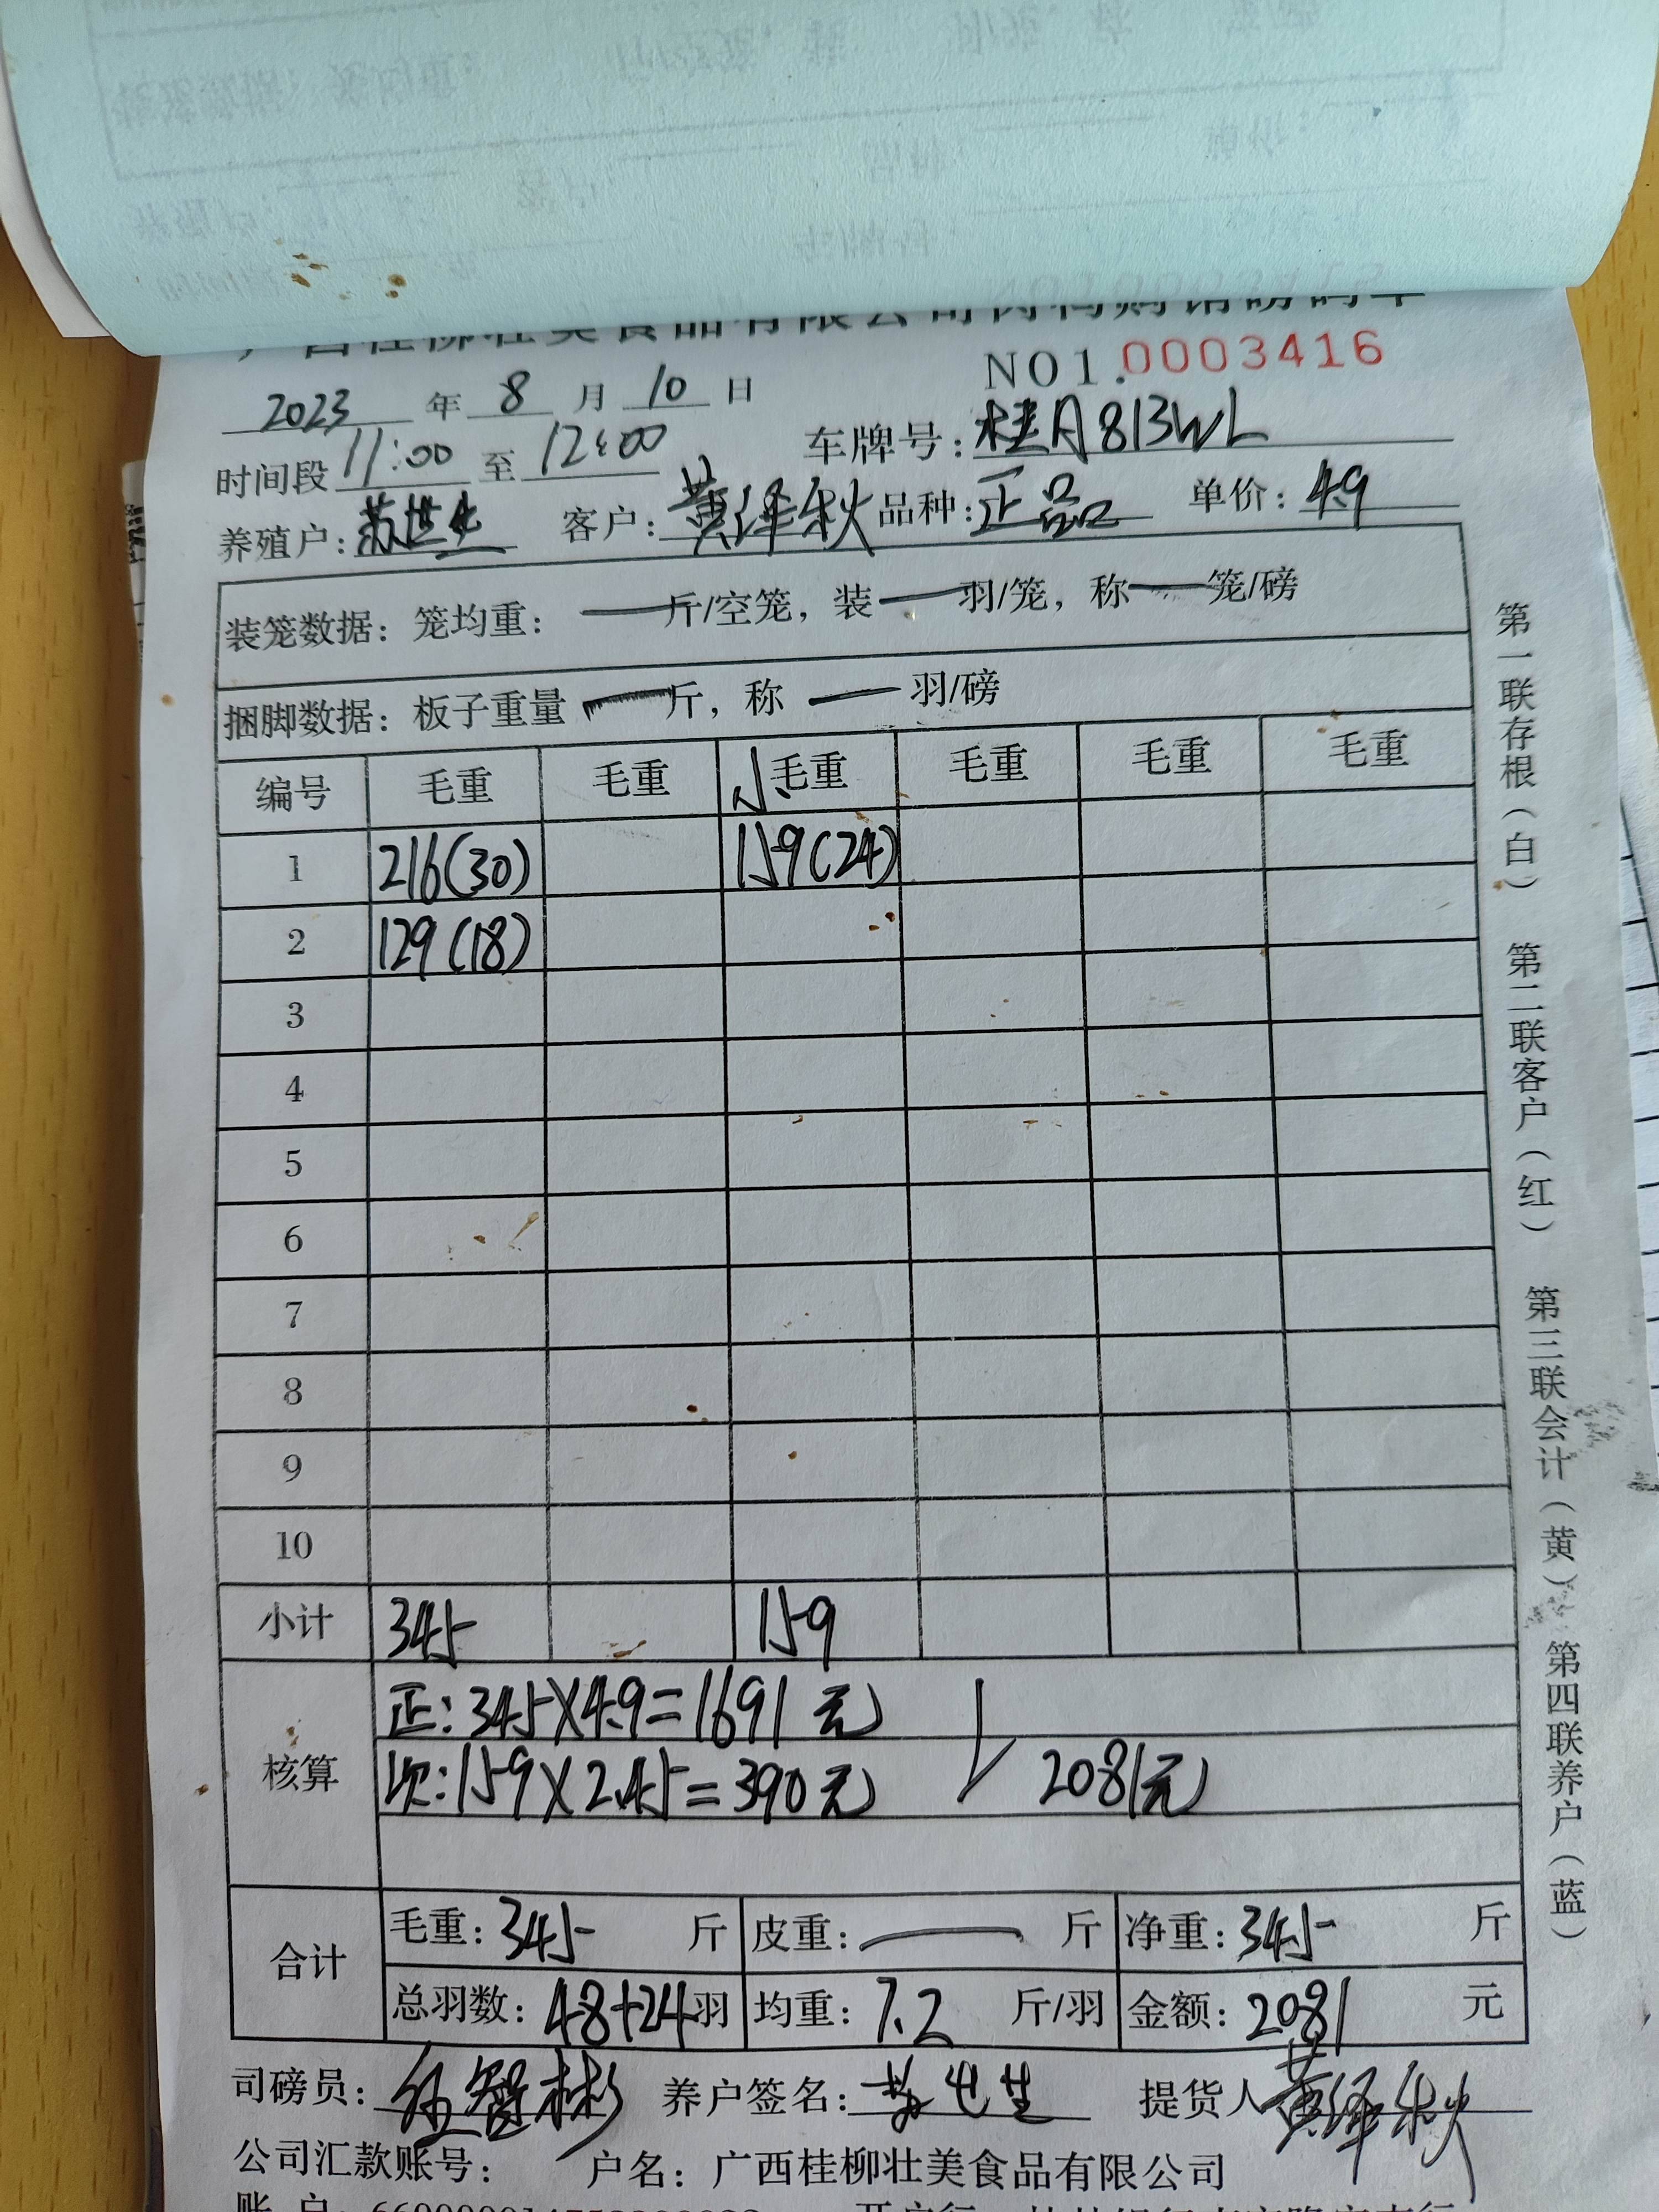 广西桂柳壮美食品有限公司肉鸭购销磅码单
NO1.0003416
2023 年 8 月 10 日
时间段 11:00 至 12:00 车牌号: 桂A813WL
养殖户: 苏世生 客户: 黄泽秋 品种: 正品 单价: 4.9
装笼数据: 笼均重: — 斤/空笼, 装 — 羽/笼, 称 — 笼/磅
捆脚数据: 板子重量 — 斤, 称 — 羽/磅
编号 毛重 毛重 小毛重 毛重 毛重 毛重
1 216(30) 159(24)
2 129(18)
3
4
5
6
7
8
9
10
小计 345 159
核算
正: 345×4.9=1691元
次: 159×2.45=390元 2081元
合计
毛重: 345 斤 皮重: — 斤 净重: 345 斤
总羽数: 48+24羽 均重: 7.2 斤/羽 金额: 2081 元
司磅员: 伍智彬 养户签名: 苏世生 提货人 黄泽秋
公司汇款账号: 户名: 广西桂柳壮美食品有限公司
第一联存根(白) 第二联客户(红) 第三联会计(黄) 第四联养户(蓝)